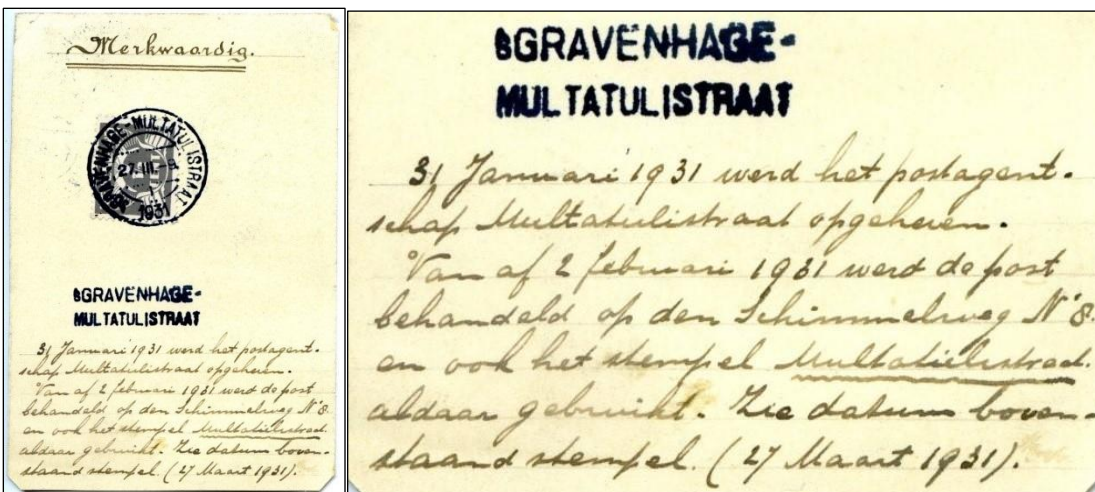 Merkwaardig.
SGRAVENHAGE-MULTATULISTRAAT
27.III.-8.
1931
SGRAVENHAGE-
MULTATULISTRAAT
31 Januari 1931 werd het postagent-
schap Multatulistraat opgeheven.
Van af 2 februari 1931 werd de post
behandeld op den Schimmelweg No 8.
en ook het stempel Multatulistraat
aldaar gebruikt. Zie datum boven-
staand stempel. (27 Maart 1931).
SGRAVENHAGE-
MULTATULISTRAAT
31 Januari 1931 werd het postagent-
schap Multatulistraat opgeheven.
Van af 2 februari 1931 werd de post
behandeld op den Schimmelweg No 8.
en ook het stempel Multatulistraat.
aldaar gebruikt. Zie datum boven-
staand stempel. (27 Maart 1931).